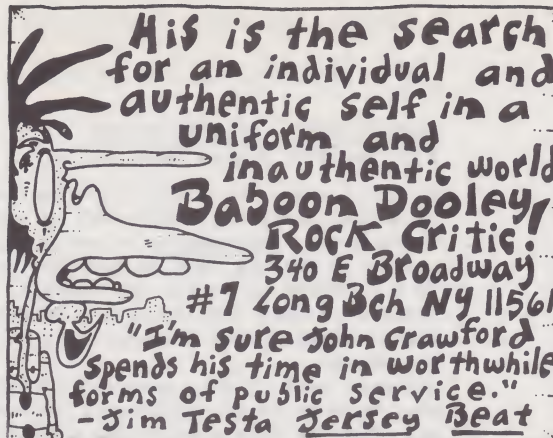 His is the search
for an individual and
authentic self in a
uniform and
inauthentic world
Baboon Dooley,
Rock Critic!
340 E Broadway
#7 Long Bch NY 11561
"I'm sure John Crawford
spends his time in worthwhile
forms of public service."
-Jim Testa Jersey Beat